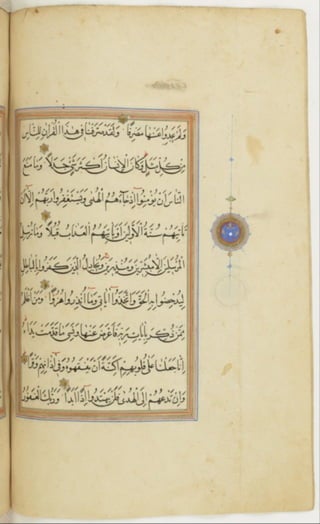 وَلَمْ يَجِدُوا عَنْهَا مَصْرِفًا وَلَقَدْ صَرَّفْنَا فِي هَٰذَا الْقُرْآنِ لِلنَّاسِ
مِنْ كُلِّ مَثَلٍ وَكَانَ الْإِنْسَانُ أَكْثَرَ شَيْءٍ جَدَلًا وَمَا مَنَعَ
النَّاسَ أَنْ يُؤْمِنُوا إِذْ جَاءَهُمُ الْهُدَىٰ وَيَسْتَغْفِرُوا رَبَّهُمْ إِلَّا أَنْ
تَأْتِيَهُمْ سُنَّةُ الْأَوَّلِينَ أَوْ يَأْتِيَهُمُ الْعَذَابُ قُبُلًا وَمَا نُرْسِلُ
الْمُرْسَلِينَ إِلَّا مُبَشِّرِينَ وَمُنْذِرِينَ وَيُجَادِلُ الَّذِينَ كَفَرُوا بِالْبَاطِلِ
لِيُدْحِضُوا بِهِ الْحَقَّ وَاتَّخَذُوا آيَاتِي وَمَا أُنْذِرُوا هُزُوًا وَمَنْ أَظْلَمُ
مِمَّنْ ذُكِّرَ بِآيَاتِ رَبِّهِ فَأَعْرَضَ عَنْهَا وَنَسِيَ مَا قَدَّمَتْ يَدَاهُ
إِنَّا جَعَلْنَا عَلَىٰ قُلُوبِهِمْ أَكِنَّةً أَنْ يَفْقَهُوهُ وَفِي آذَانِهِمْ وَقْرًا
وَإِنْ تَدْعُهُمْ إِلَى الْهُدَىٰ فَلَنْ يَهْتَدُوا إِذًا أَبَدًا وَرَبُّكَ الْغَفُورُ